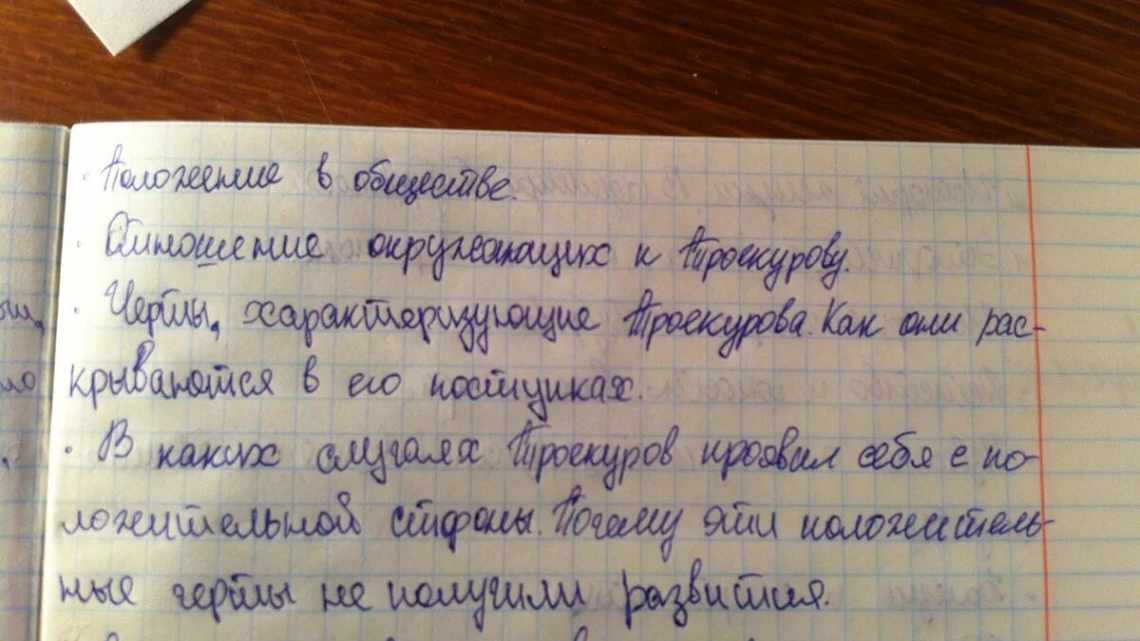 · Положение в обществе.
· Отношение окружающих к Троекурову.
· Черты, характеризующие Троекурова. Как они рас-
крываются в его поступках.
· В каких случаях Троекуров проявил себя с по-
ложительной стороны. Почему эти положитель-
ные черты не получили развития.